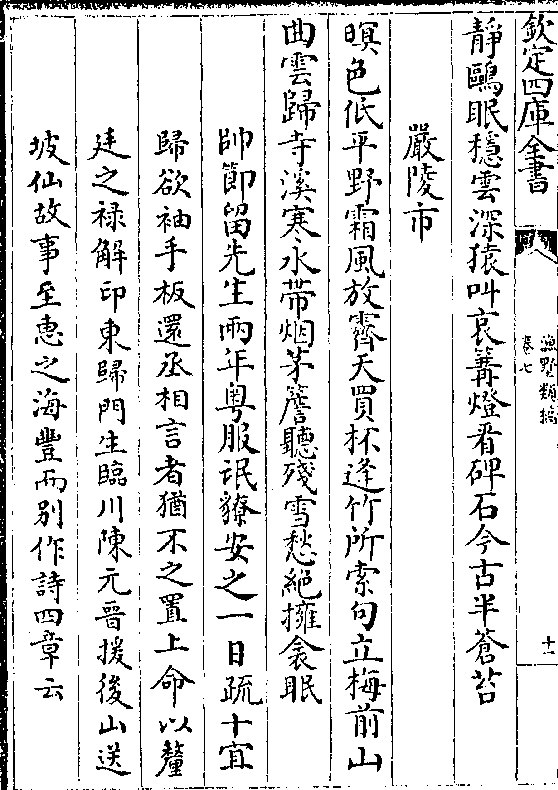 欽定四庫全書
漁墅類稿
卷七
十一
靜鷗眠穩雲深猿叫哀篝燈看碑石今古半蒼苔
嚴陵市
暝色低平野霜風放霽天買杯逢竹所索句立梅前山
曲雲歸寺溪寒水帶烟茅簷聽殘雪愁絶擁衾眠
帥節留先生兩年粤服氓獠安之一日疏十宜
歸欲袖手板還丞相言者猶不之置上命以釐
廷之禄解印東歸門生臨川陳元晉援後山送
坡仙故事至惠之海豐而别作詩四章云